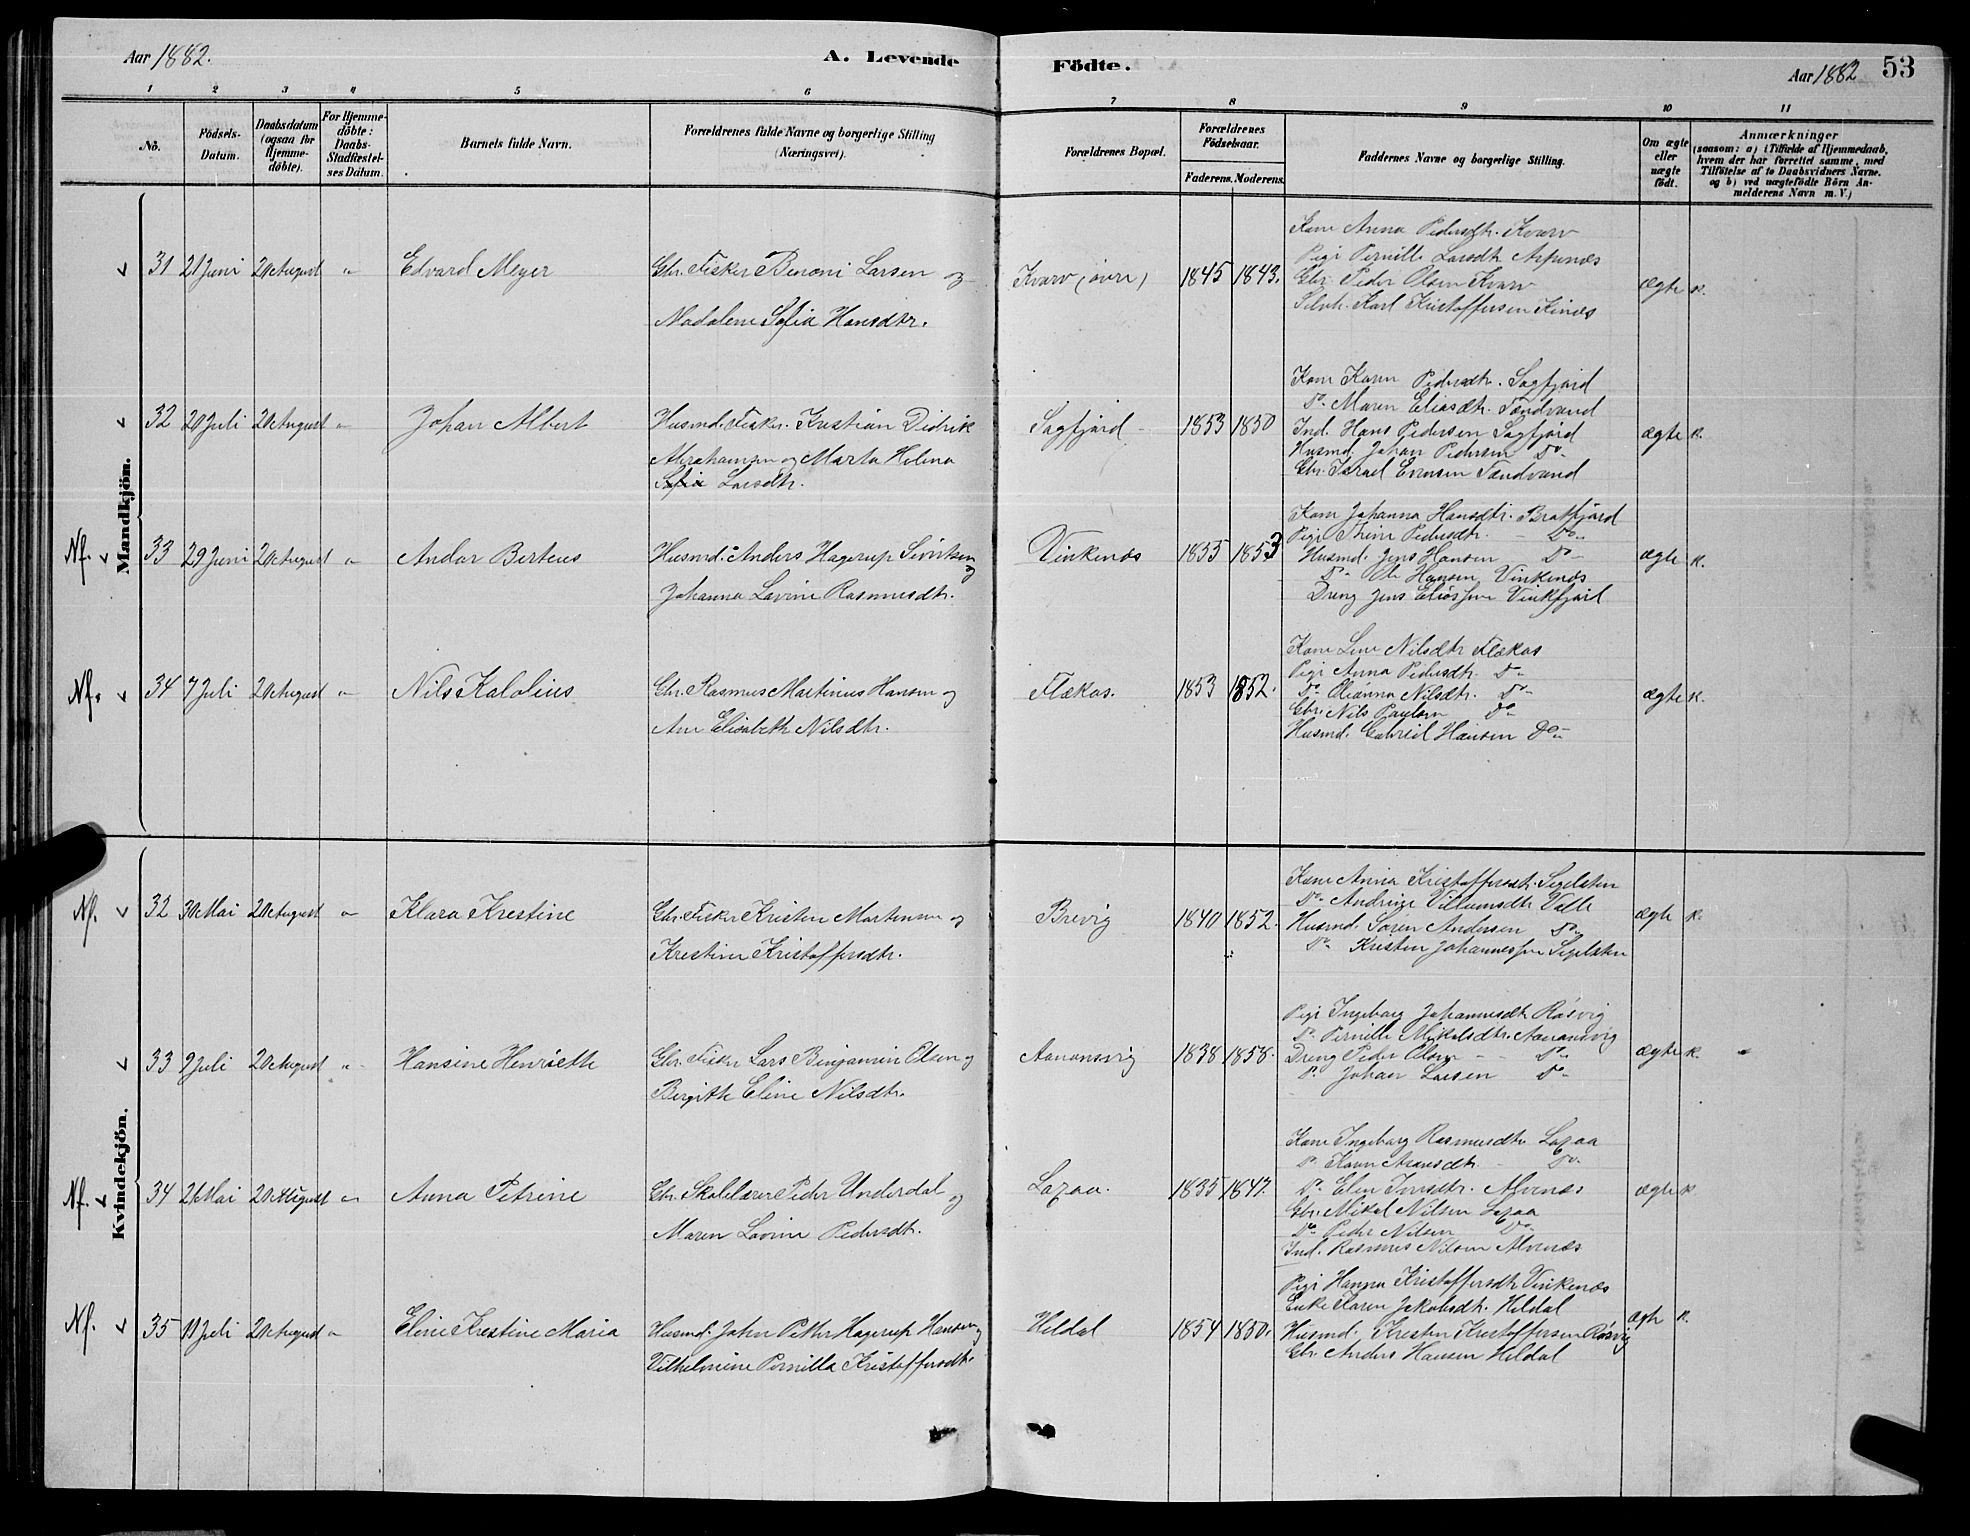 Aar 1882.
A. Levende Födte.
Aar 1882
53
1 2 3 4 5 6 7 8 9 10 11
Nô.
Födsels-Datum.
Daabsdatum (ogsaa for Hjemmedöbte).
For Hjemmedöbte: Daabs-Stadfæstelses Datum.
Barnets fulde Navn.
Forældrenes fulde Navne og borgerlige Stilling (Næringsvei).
Forældrenes Bopæl.
Forældrenes Födselsaar.
Faderens. Moderens.
Faddernes Navne og borgerlige Stilling.
Om ægte eller uægte födt.
Anmærkninger
(saasom: a) i Tilfælde af Hjemmedaab, hvem der har forrettet samme, med Tilföielse af to Daabsvidners Navne, og b) ved uægtefödte Börn Anmelderens Navn m. V.)
Mandkjön.
31 21 Juni 20 August " Edvard Meyer
Gbr. Fisker Benoni Larsen og
Madalene Sofia Hansdtr.
Kvarv (övre) 1845 1843.
Kone Anna Pedersdtr. Kvarv
Pige Pernille Larsdtr
Gbr. Peder Olsen Kvarv
Selvh. Karl Kristoffersen
ægte K.
32 20 Juli 20 August " Johan Albert
Husmd. Fisker. Kristian Didrik
Abrahamsen og Marta Helena
Sofia Larsdtr.
Sagfjord 1853 1850
Kone Karen Pedersdtr. Sagfjord
Do Maren Eliasdtr. Tendvand
Ind. Hans Pedersen Sagfjord
Husmd. Johan Pedersen Do
Gbr. Israel Evensen Tendvand
ægte K.
Nf. 33 29 Juni 20 August " Andor Berteus
Husmd. Anders Hagerup Sivertsen og
Johanna Lavine Rasmusdtr.
Vinkenes 1855 1853
Kone Johanna Hansdtr. Bratfjord
Pige Trine Pedersdtr. Do
Husmd. Jens Hansen Do
Do Ole Hansen Vinkenes
Dreng Jens Eliassen Vinkfjord
ægte K.
Nf. 34 7 Juli 20 August " Nils Kalolius
Gbr. Rasmus Martinus Hansen og
Ane Elisabeth Nilsdtr.
Flækas. 1853 1852.
Kone Line Nilsdtr Flækas
Pige Anna Pedersdtr. Do
Do Olianna Nilsdtr. Do
Gbr. Nils Paulsen Do
Husmd. Gabriel Hansen Do
ægte K.
Kvindekjön.
Nf. 32 30 Mai 20 August " Klara Krestine
Gbr. Fisker Kristen Martensen og
Krestine Kristoffersdtr.
Brevig 1840 1852.
Kone Anna Kristoffersdtr. Segelsten
Do Andrine Villumsdtr Valle
Husmd. Sören Andersen Do
Do Kristen Johannessen Segelsten
ægte K.
33 9 Juli 20 August " Hansine Henriette
Gbr. Fisker Lars Benjamin Olsen og
Birgith Eline Nilsdtr.
Aanonsvig 1838 1858.
Pige Ingeborg Johannesdtr Rösvig
Do Pernille Mikelsdtr. Aanonsvig
Dreng Peder Olsen Do
Do Johan Larsen Do
ægte K.
Nf. 34 26 Mai 20 August " Anna Petrine
Gbr. Skolelærer Peder Underdal og
Maren Lovise Pedersdtr.
Laxaa. 1835 1847.
Kone Ingeborg Rasmusdtr Laxaa
Do Karen Do
Do Elen Jensdtr. Alvenes
Gbr. Mikal Nilsen Laxaa
Do Peder Nilsen Do
Ind. Rasmus Nilsen Alvenes
ægte K.
Nf. 35 11 Juli 20 August " Eline Krestine Maria
Husmd. John Petter Hagerup Hansen og
Vilhelmine Pernilla Kristoffersdtr.
Heldal 1854 1850.
Pige Hanna Kristoffersdtr Vinkenes
Enke Karen Jakobsdtr. Heldal
Husmd. Kresten Kristoffersen Rösvig
Gbr. Anders Hansen Heldal
ægte K.